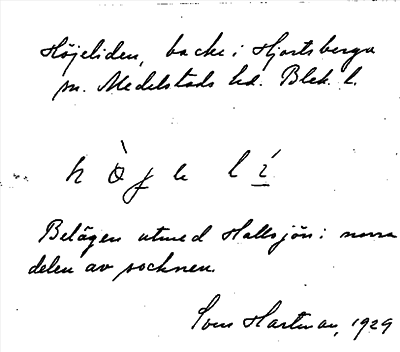 Höjeliden, backe i Hjortsberga
sn. Medelstads hd. Blek. l.
h ò j e l í
Belägen utmed Hallsjön i norra
delen av socknen.
Sven Hartman, 1929